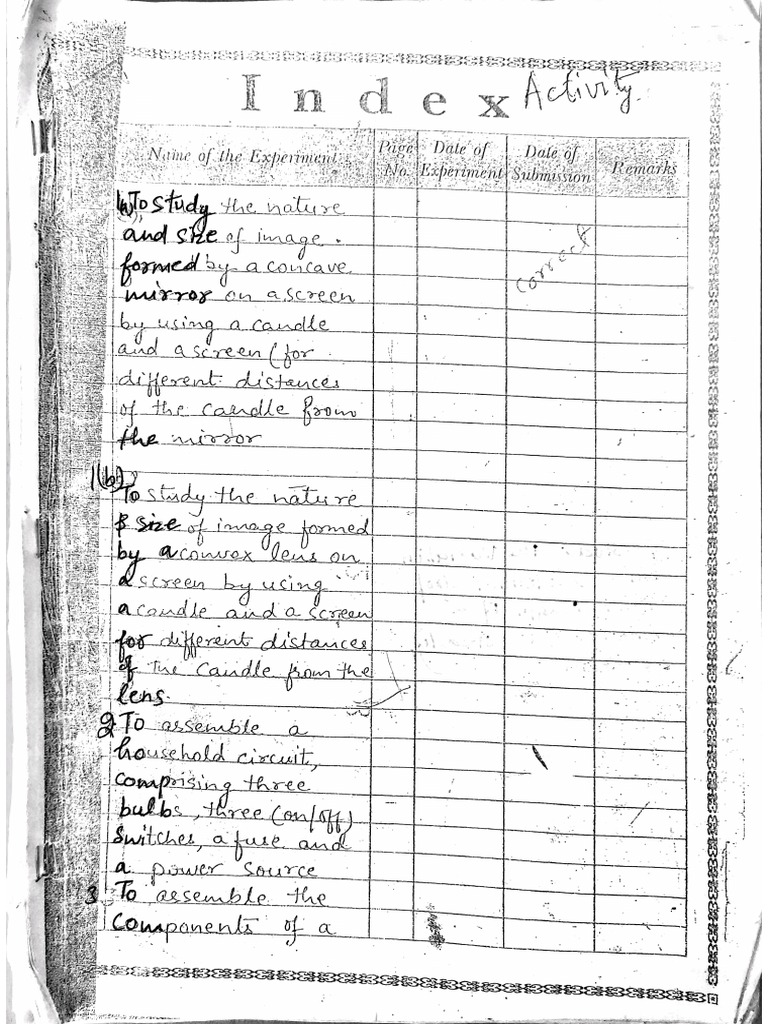 Index Activity.
Name of the Experiment Page No. Date of Experiment Date of Submission Remarks
1(a) To study the nature
and size of image.
formed by a concave
mirror on a screen
by using a candle
and a screen (for
different distances
of the candle from
the mirror
Correct
1(b)
To study the nature
& size of image formed
by a convex lens on
a screen by using
a candle and a screen
for different distances
of the candle from the
lens.
2 To assemble a
household circuit,
comprising three
bulbs, three (on/off)
switches, a fuse and
a power source
3 To assemble the
components of a